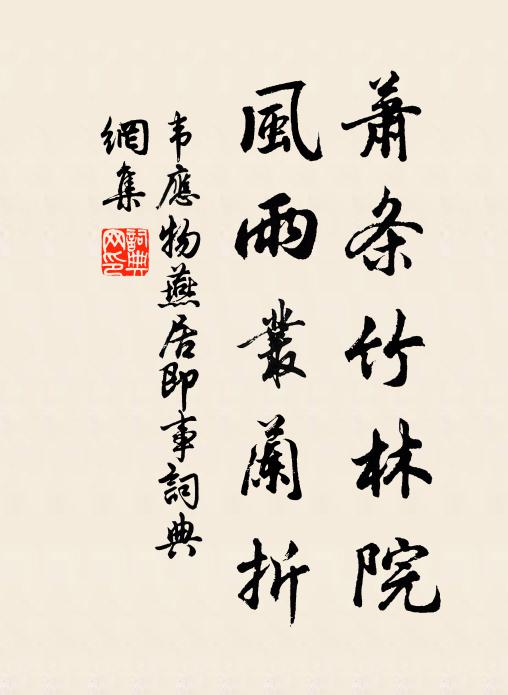 蕭条竹林院
風雨叢蘭折
韦應物燕居即事詞典
網集
詞典網印